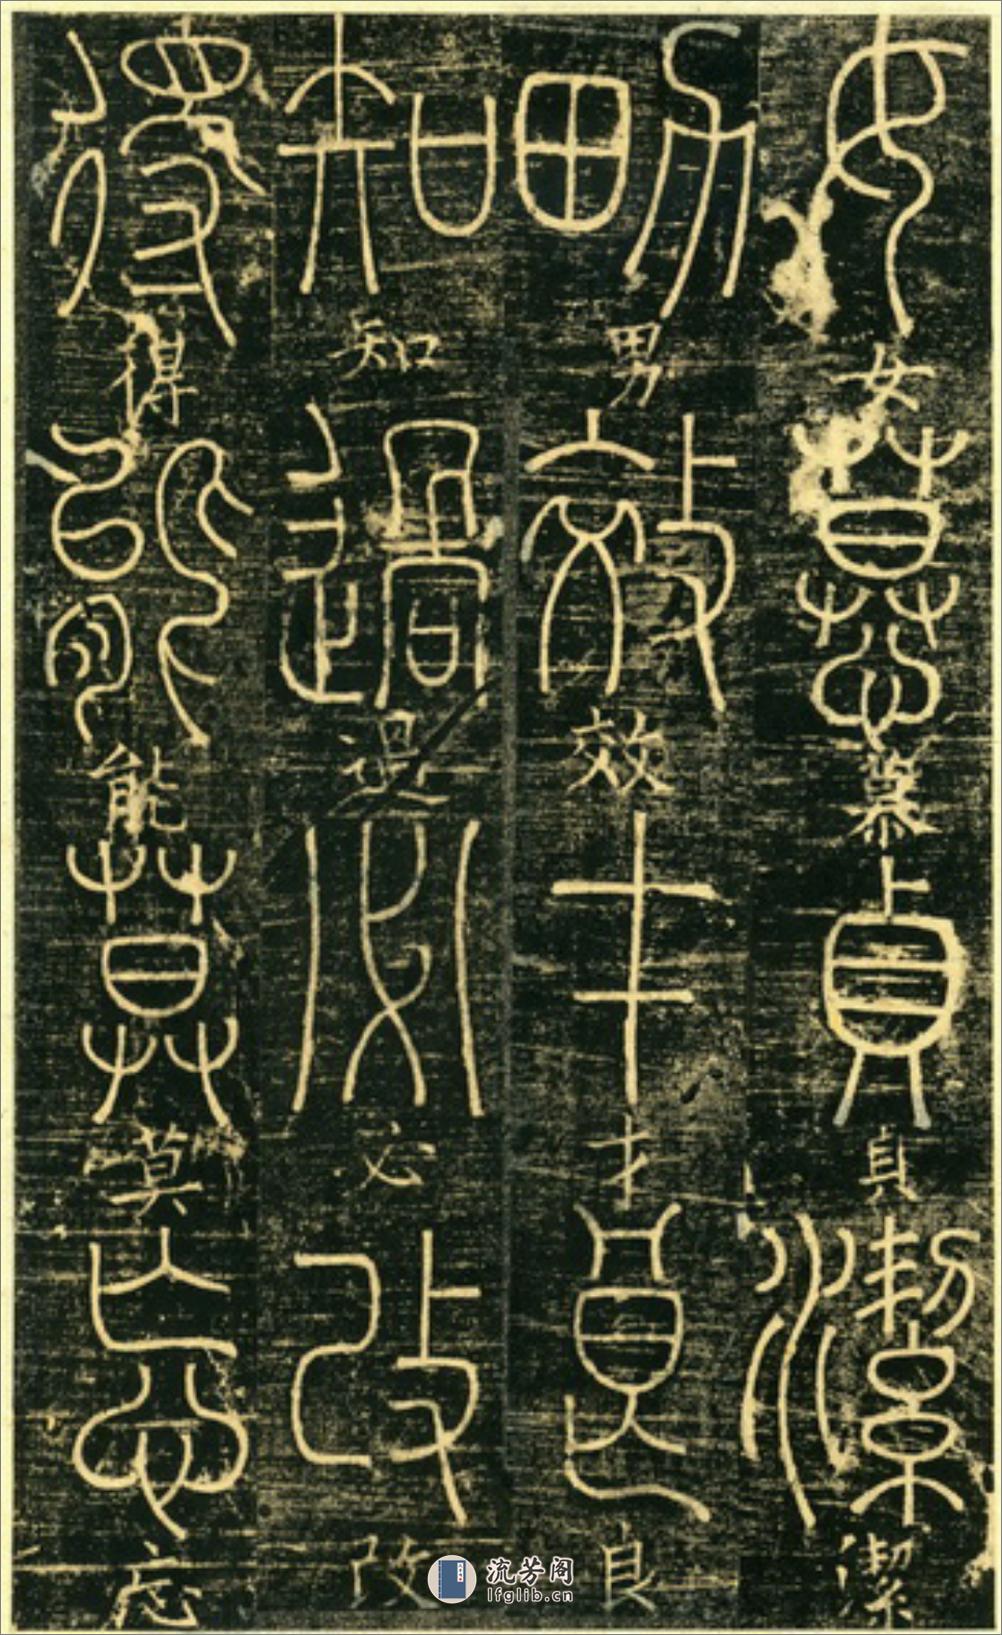 女女慕慕貞貞潔潔
男男效效才才良良
知知過過必必改改
得得能能莫莫忘忘
流芳阁
lfglib.cn